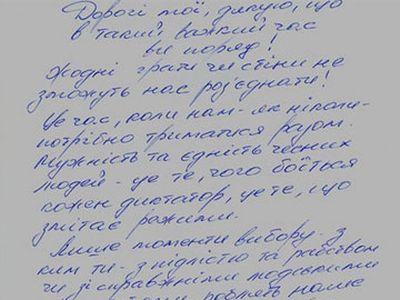 Дорогі мої, дякую, що
в такий важкий час
ви поряд!
Жодні грати чи стіни не
зможуть нас роз'єднати!
Це час, коли нам - як ніколи -
потрібно триматися разом.
Мужність та єдність чесних
людей - це те, чого боїться
кожен диктатор, це те, що
змітає режими.
Лише моменти вибору - з
ким ти - з підлістю та рабством
чи зі справжніми людськими
роблять наше